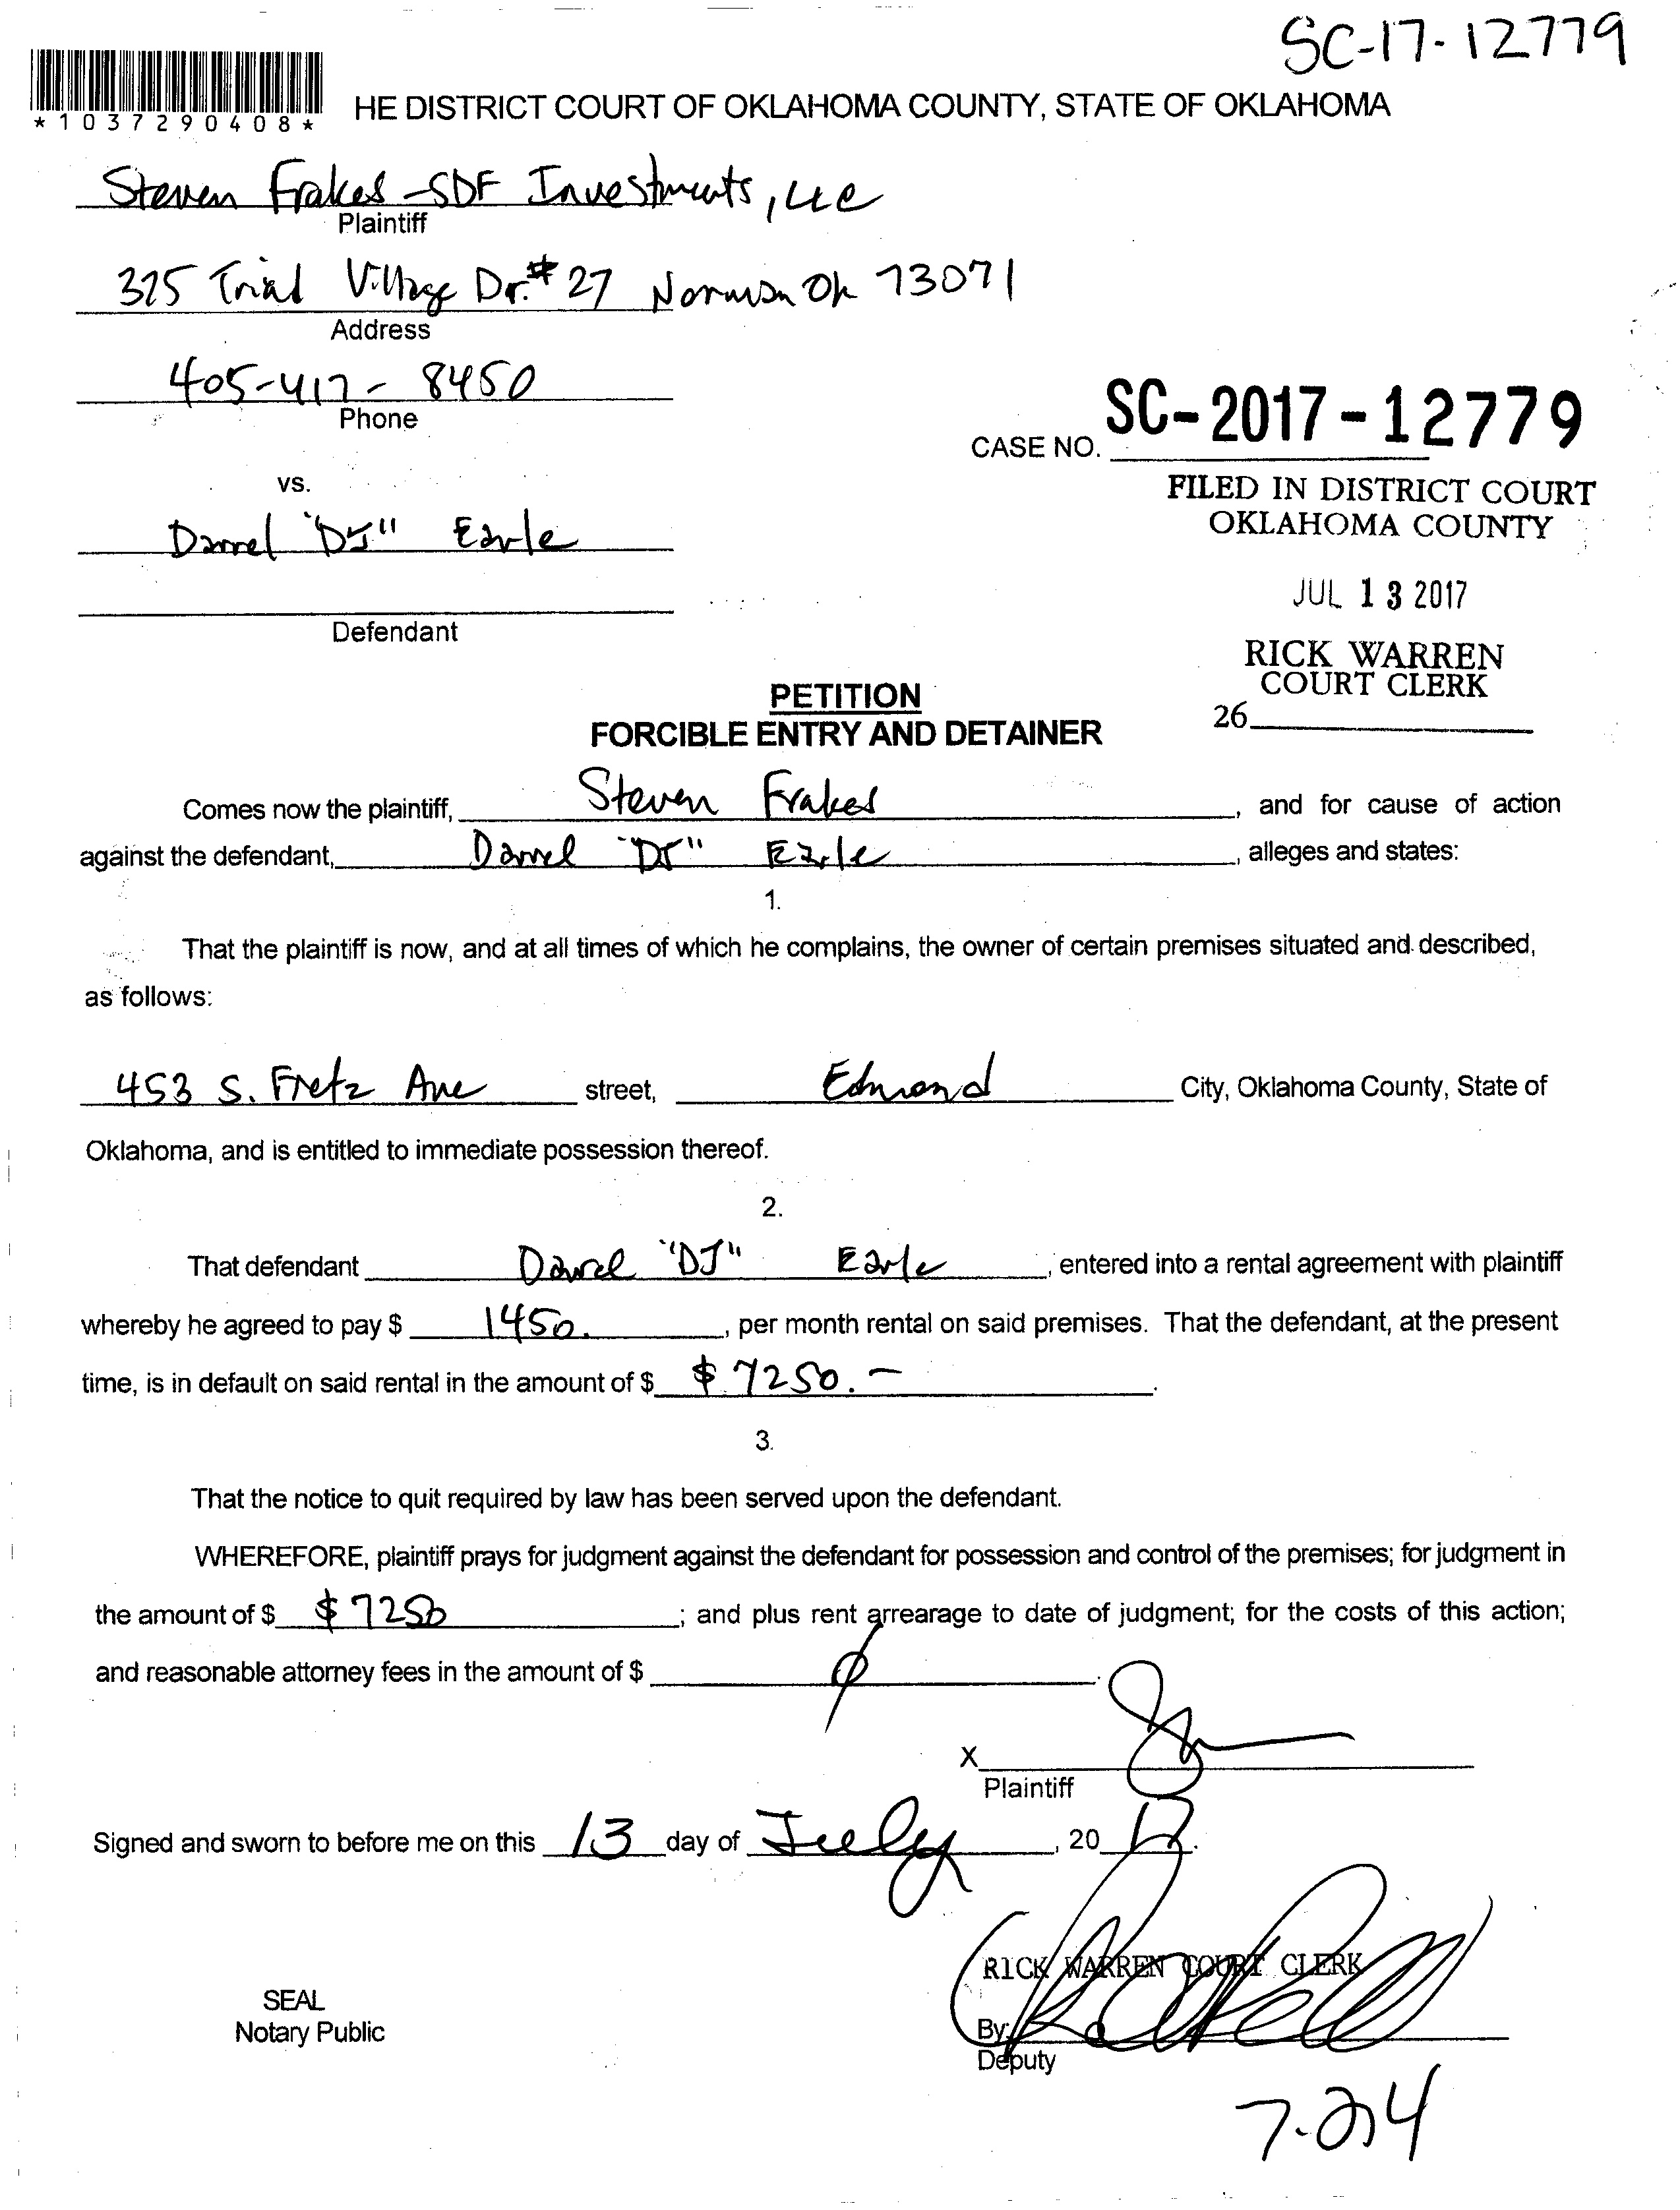 SC-17-12779
*1037290408*
HE DISTRICT COURT OF OKLAHOMA COUNTY, STATE OF OKLAHOMA
Steven Frakes - SDF Investments, LLC
Plaintiff
325 Triad Village Dr. # 27 Norman Ok 73071
Address
405-417-8450
Phone
CASE NO. SC-2017-12779
vs.
FILED IN DISTRICT COURT
OKLAHOMA COUNTY
Darrel "DJ" Earle
JUL 13 2017
Defendant
RICK WARREN
COURT CLERK
26
PETITION
FORCIBLE ENTRY AND DETAINER
Comes now the plaintiff, Steven Frakes, and for cause of action
against the defendant, Darrel "DJ" Earle, alleges and states:
1.
That the plaintiff is now, and at all times of which he complains, the owner of certain premises situated and described,
as follows:
453 S. Fretz Ave street, Edmond City, Oklahoma County, State of
Oklahoma, and is entitled to immediate possession thereof.
2.
That defendant Darrel "DJ" Earle, entered into a rental agreement with plaintiff
whereby he agreed to pay $ 1450., per month rental on said premises. That the defendant, at the present
time, is in default on said rental in the amount of $ $ 7250.-.
3.
That the notice to quit required by law has been served upon the defendant.
WHEREFORE, plaintiff prays for judgment against the defendant for possession and control of the premises; for judgment in
the amount of $ $ 7250; and plus rent arrearage to date of judgment; for the costs of this action;
and reasonable attorney fees in the amount of $ ∅.
X
Plaintiff
Signed and sworn to before me on this 13 day of July, 20 17.
RICK WARREN COURT CLERK
SEAL
Notary Public
By:
Deputy
7-24